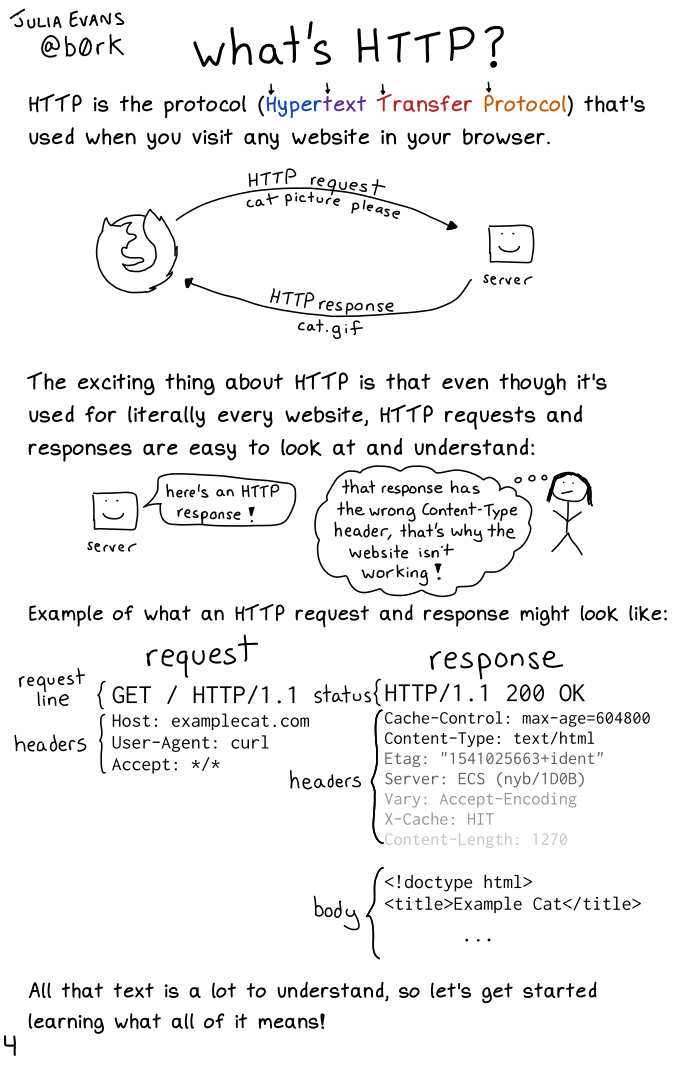 JULIA EVANS
@b0rk
what's HTTP?
HTTP is the protocol (Hypertext Transfer Protocol) that's
used when you visit any website in your browser.
HTTP request
cat picture please
server
HTTP response
cat.gif
The exciting thing about HTTP is that even though it's
used for literally every website, HTTP requests and
responses are easy to look at and understand:
here's an HTTP
response!
server
that response has
the wrong Content-Type
header, that's why the
website isn't
working!
Example of what an HTTP request and response might look like:
request
request
line
GET / HTTP/1.1
headers
Host: examplecat.com
User-Agent: curl
Accept: */*
response
status
HTTP/1.1 200 OK
headers
Cache-Control: max-age=604800
Content-Type: text/html
Etag: "1541025663+ident"
Server: ECS (nyb/1D0B)
Vary: Accept-Encoding
X-Cache: HIT
Content-Length: 1270
body
<!doctype html>
<title>Example Cat</title>
...
All that text is a lot to understand, so let's get started
learning what all of it means!
4